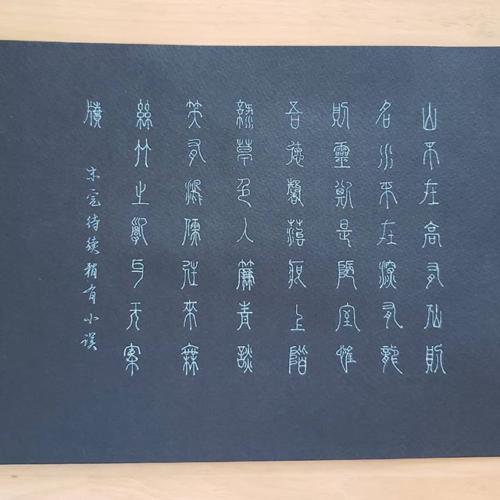 山不在高有仙則
名水不在深有龍
則靈斯是陋室惟
吾德馨菭痕上階
綠草色入簾青談
笑有鴻儒往來無
絲竹之亂耳无案
牘
未完待续稍有小误